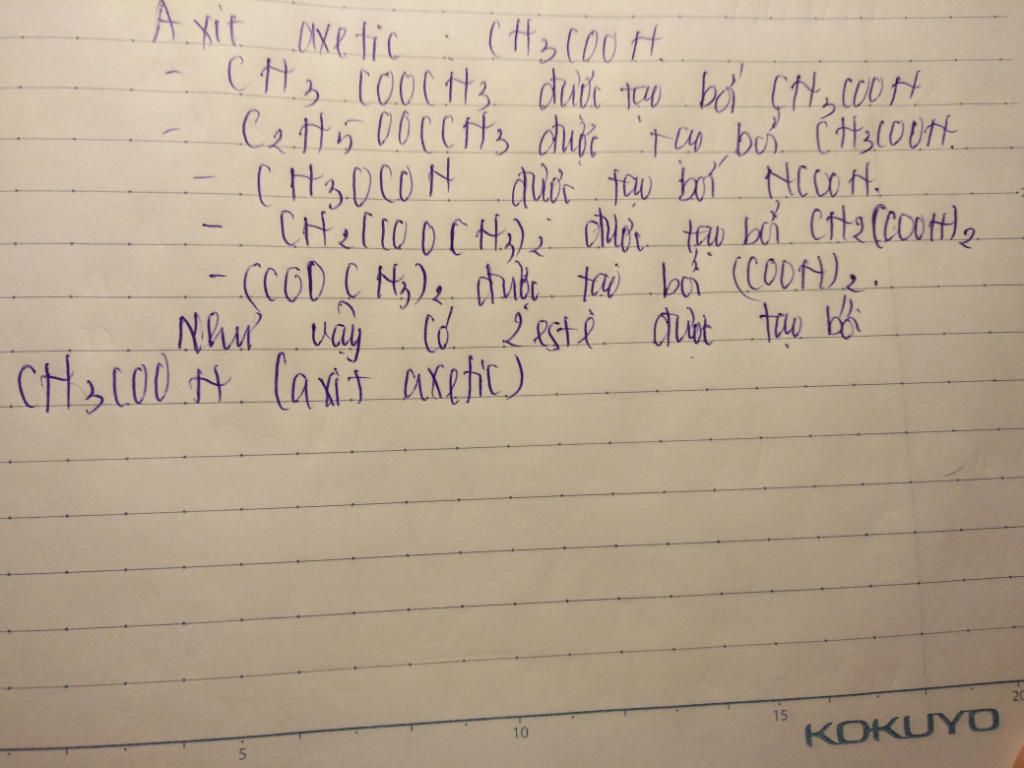 Axit axetic : CH3COOH.
- CH3 COOCH3 được tạo bởi CH3COOH
- C2H5 OOCCH3 được tạo bởi CH3COOH.
- CH3OCOH được tạo bởi HCOOH.
- CH2(COOCH3)2 được tạo bởi CH2(COOH)2
- (COOCH3)2 được tạo bởi (COOH)2.
Như vậy có 2 este được tạo bởi
CH3COOH (axit axetic)
5 10 15 20
KOKUYO